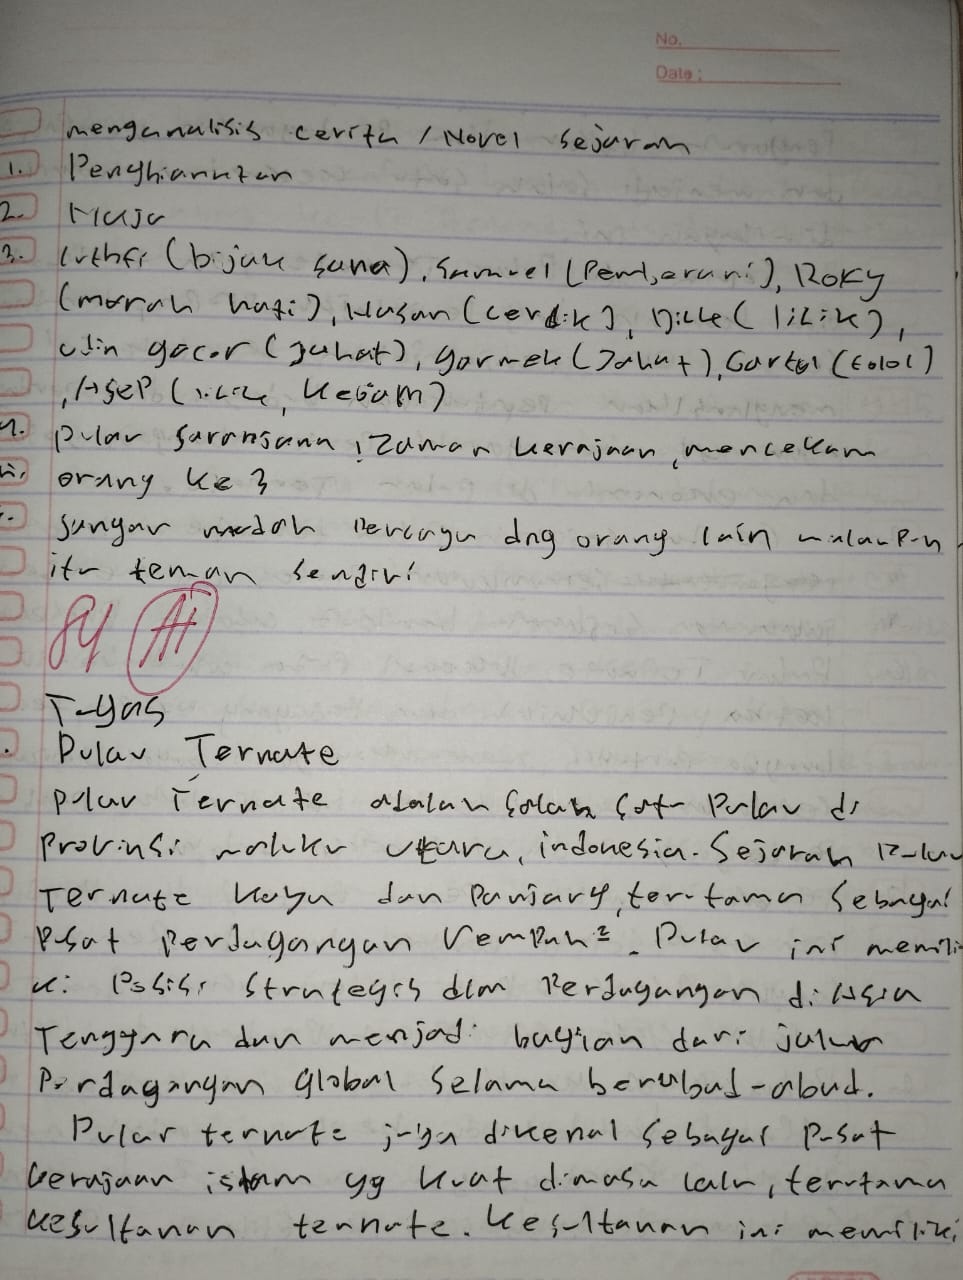 No.
Date :
menganalisis cerita / Novel Sejarah
1. Penghianatan
2. Maju
3. luthfi (bijak sana), Samuel (Pemberani), ROKY
(morah hati), Hasan (cerdik), Dikke ( licik),
udin gacor (Jahat), gormek (Jahat), Garkol (tolol)
, ASEP (licik, kejam)
4. pulau saransana, Zaman kerajaan, mencekam
orang ke 3
Jangan mudah Percaya dng orang lain walaupun
itu teman sendiri
84 A+
Tugas
Pulau Ternate
Pulau Ternate adalah salah satu Pulau di
Provinsi maluku utara, indonesia. Sejarah Pulau
Ternate kaya dan Panjang, terutama sebagai
Pusat Perdagangan rempah². Pulau ini memili
ki Posisi Strategis dlm Perdagangan di Asia
Tenggara dan menjadi bagian dari jalur
Perdagangan Global Selama berabad-abad.
Pulau ternate juga dikenal sebagai Pusat
kerajaan islam yg kuat dimasa lalu, terutama
kesultanan ternate. kesultanan ini memiliki